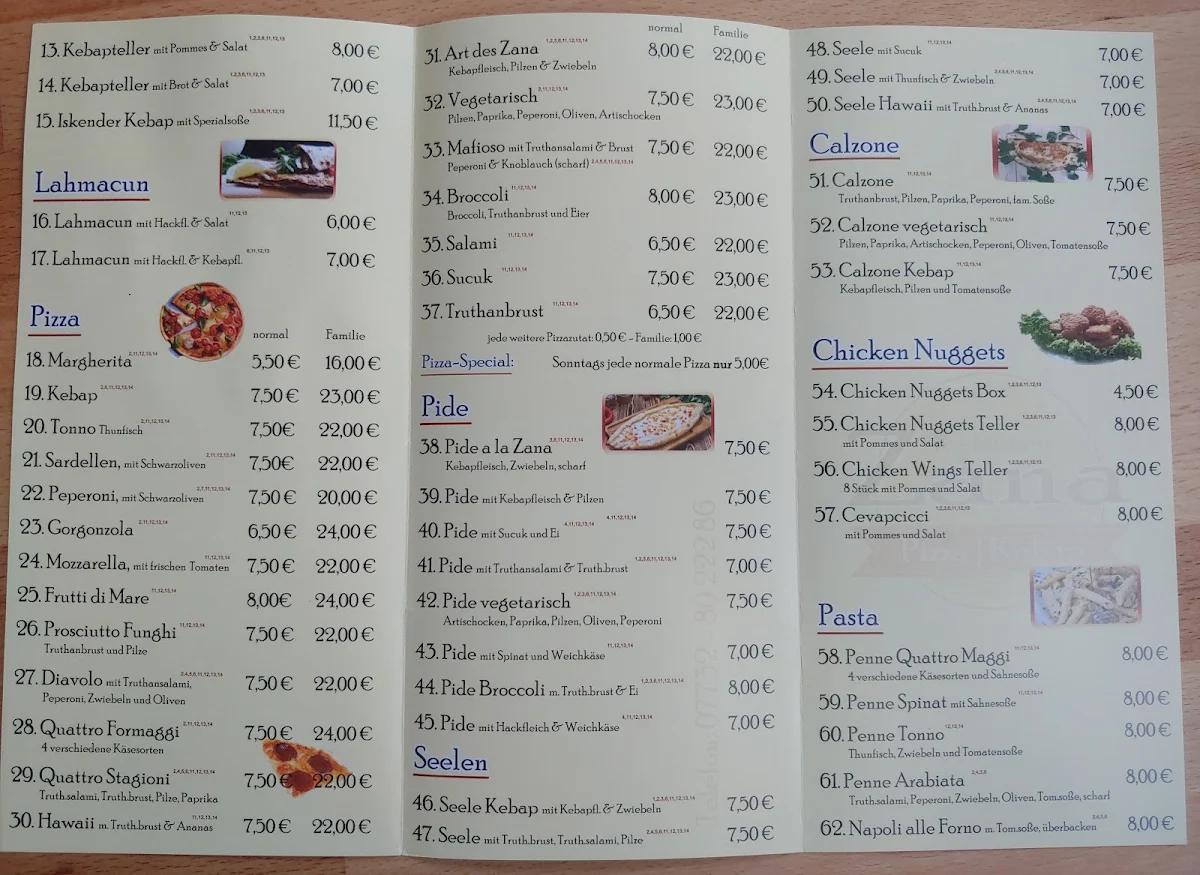 13. Kebapteller mit Pommes & Salat 1,2,3,6,11,12,13 8,00 €
14. Kebapteller mit Brot & Salat 1,2,3,6,11,12,13 7,00 €
15. Iskender Kebap mit Spezialsoße 1,2,3,6,11,12,13 11,50 €
Lahmacun
16. Lahmacun mit Hackfl. & Salat 11,12,13 6,00 €
17. Lahmacun mit Hackfl. & Kebapfl. 6,11,12,13 7,00 €
Pizza
normal Familie
18. Margherita 2,11,12,13,14 5,50 € 16,00 €
19. Kebap 2,6,11,12,13,14 7,50 € 23,00 €
20. Tonno Thunfisch 2,11,12,13,14 7,50€ 22,00 €
21. Sardellen, mit Schwarzoliven 2,11,12,13,14 7,50€ 22,00 €
22. Peperoni, mit Schwarzoliven 2,7,11,12,13,14 7,50 € 20,00 €
23. Gorgonzola 2,11,12,13,14 6,50 € 24,00 €
24. Mozzarella, mit frischen Tomaten 11,12,13,14 7,50 € 22,00 €
25. Frutti di Mare 11,12,13,14 8,00€ 24,00 €
26. Prosciutto Funghi 11,12,13,14 7,50 € 22,00 €
Truthanbrust und Pilze
27. Diavolo mit Truthansalami, 2,4,5,6,11,12,13,14 7,50 € 22,00 €
Peperoni, Zwiebeln und Oliven
28. Quattro Formaggi 2,11,12,13,14 7,50 € 24,00 €
4 verschiedene Käsesorten
29. Quattro Stagioni 2,4,5,6,11,12,13,14 7,50 € 22,00 €
Truth.salami, Truth.brust, Pilze, Paprika
30. Hawaii m. Truth.brust & Ananas 11,12,13,14 7,50 € 22,00 €
normal Familie
31. Art des Zana 1,2,3,6,11,12,13,14 8,00 € 22,00 €
Kebapfleisch, Pilzen & Zwiebeln
32. Vegetarisch 2,11,12,13,14 7,50 € 23,00 €
Pilzen, Paprika, Peperoni, Oliven, Artischocken
33. Mafioso mit Truthansalami & Brust 7,50 € 22,00 €
Peperoni & Knoblauch (scharf) 2,4,5,6,11,12,13,14
34. Broccoli 11,12,13,14 8,00 € 23,00 €
Broccoli, Truthanbrust und Eier
35. Salami 11,12,13,14 6,50 € 22,00 €
36. Sucuk 11,12,13,14 7,50 € 23,00 €
37. Truthanbrust 11,12,13,14 6,50 € 22,00 €
jede weitere Pizzazutat: 0,50 € - Familie: 1,00 €
Pizza-Special: Sonntags jede normale Pizza nur 5,00€
Pide
38. Pide a la Zana 3,6,11,12,13,14 7,50 €
Kebapfleisch, Zwiebeln, scharf
39. Pide mit Kebapfleisch & Pilzen 7,50 €
40. Pide mit Sucuk und Ei 4,11,12,13,14 4,11,12,13,14 7,50 €
41. Pide mit Truthansalami & Truth.brust 1,2,3,6,11,12,13,14 7,00 €
42. Pide vegetarisch 1,2,3,6,11,12,13,14 7,50 €
Artischocken, Paprika, Pilzen, Oliven, Peperoni
43. Pide mit Spinat und Weichkäse 11,12,13,14 7,00 €
44. Pide Broccoli m. Truth.brust & Ei 1,2,3,6,11,12,13,14 8,00 €
45. Pide mit Hackfleich & Weichkäse 4,11,12,13,14 7,00 €
Seelen
46. Seele Kebap mit Kebapfl. & Zwiebeln 1,2,3,6,11,12,13,14 7,50 €
47. Seele mit Truth.brust, Truth.salami, Pilze 2,4,5,6,11,12,13,14 7,50 €
48. Seele mit Sucuk 11,12,13,14 7,00 €
49. Seele mit Thunfisch & Zwiebeln 2,4,5,6,11,12,13,14 7,00 €
50. Seele Hawaii mit Truth.brust & Ananas 2,4,5,6,11,12,13,14 7,00 €
Calzone
51. Calzone 11,12,13,14 7,50 €
Truthanbrust, Pilzen, Paprika, Peperoni, Tom. Soße
52. Calzone vegetarisch 11,12,13,14 7,50 €
Pilzen, Paprika, Artischocken, Peperoni, Oliven, Tomatensoße
53. Calzone Kebap 11,12,13,14 7,50 €
Kebapfleisch, Pilzen und Tomatensoße
Chicken Nuggets
54. Chicken Nuggets Box 1,2,3,6,11,12,13 4,50 €
55. Chicken Nuggets Teller 1,2,3,6,11,12,13 8,00 €
mit Pommes und Salat
56. Chicken Wings Teller 1,2,3,6,11,12,13 8,00 €
8 Stück mit Pommes und Salat
57. Cevapcicci 1,2,3,6,11,12,13 8,00 €
mit Pommes und Salat
Pasta
58. Penne Quattro Maggi 11,12,13,14 8,00 €
4 verschiedene Käsesorten und Sahnesoße
59. Penne Spinat mit Sahnesoße 11,12,13,14 8,00 €
60. Penne Tonno 12,13,14 8,00 €
Thunfisch, Zwiebeln und Tomatensoße
61. Penne Arabiata 2,4,5,6 8,00 €
Truth.salami, Peperoni, Zwiebeln, Oliven, Tom.soße, scharf
62. Napoli alle Forno m. Tom.soße, überbacken 8,00 €